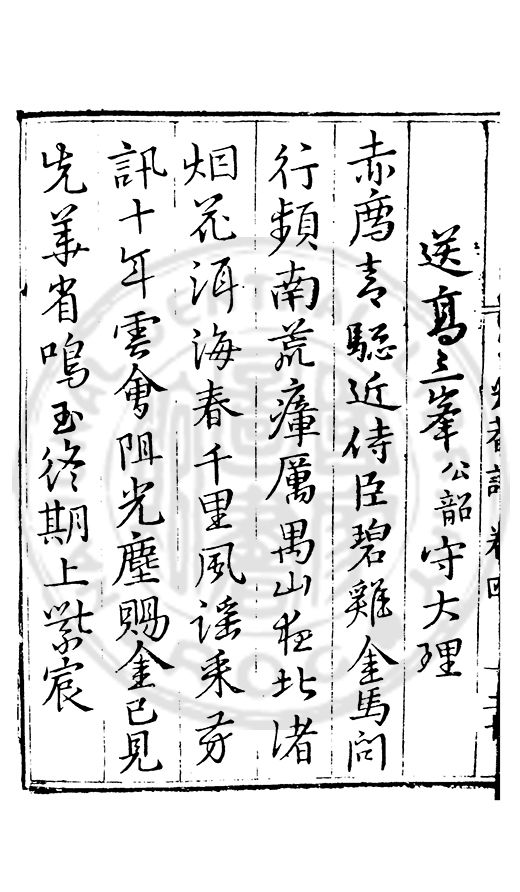 送高三峯公韶守大理
赤廌青驄近侍臣碧雞金馬問
行頻南荒瘴厲禺山夜北渚
烟花洱海春千里風謠来芳
訊十年雲會阻光塵賜金已見
先華省鳴玉終期上紫宸